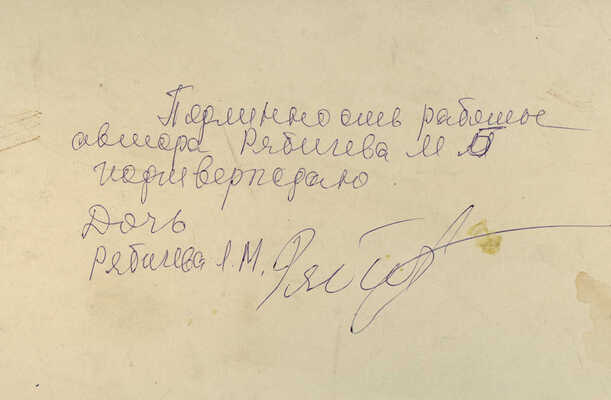 Подлинность работы
автора Рябичева М Б
подтверждаю
Дочь
Рябичева А.М.